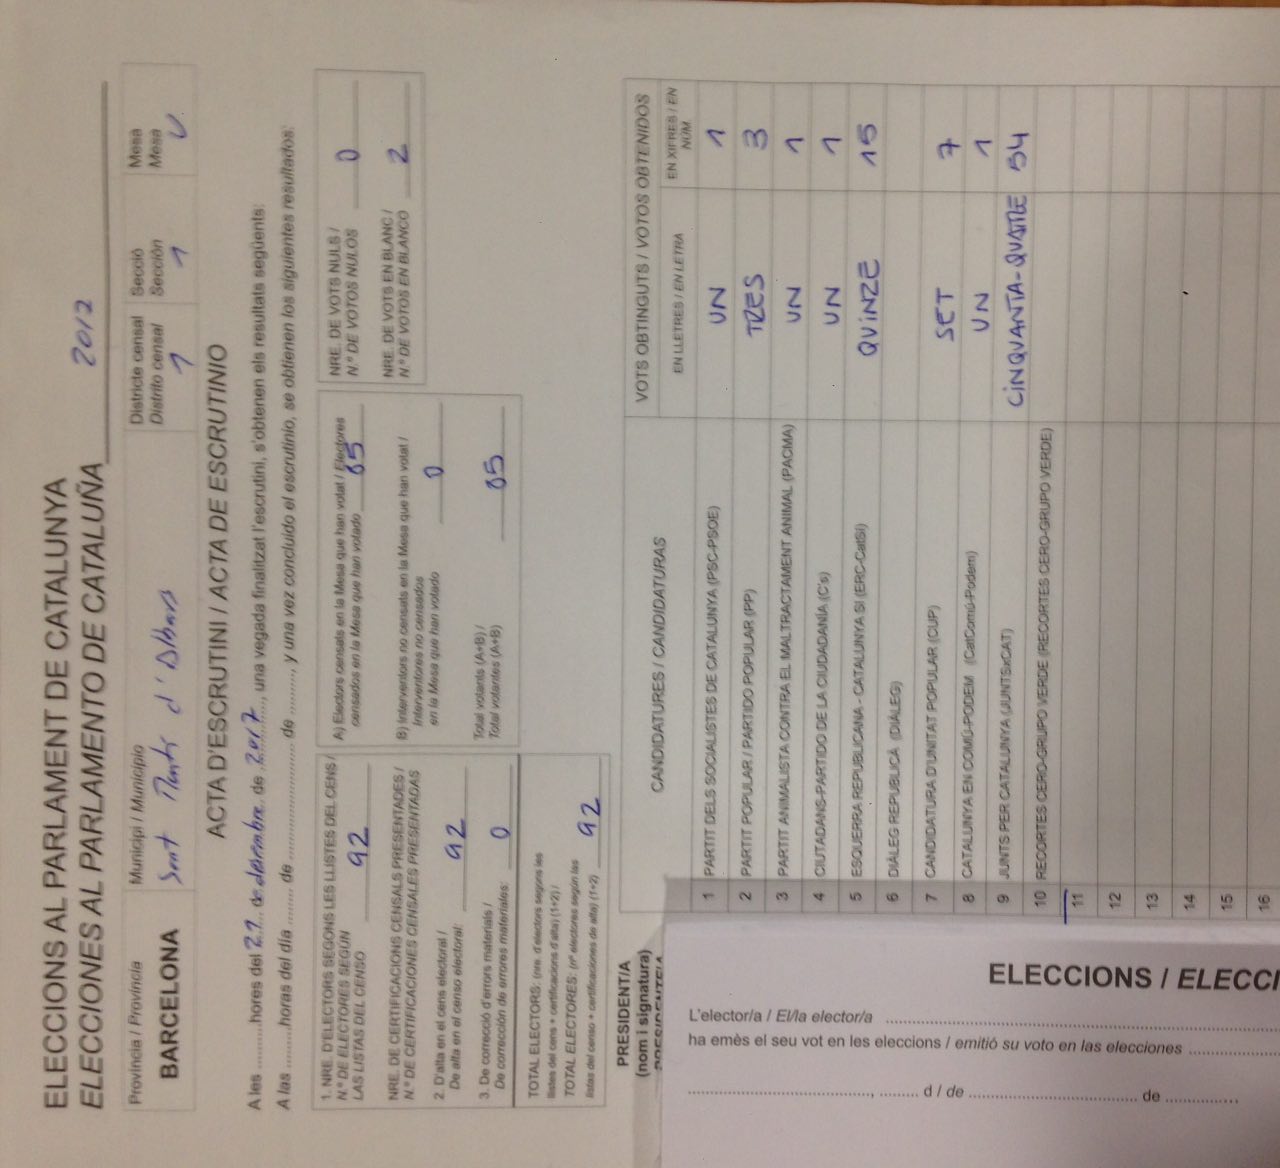 ELECCIONS AL PARLAMENT DE CATALUNYA
ELECCIONES AL PARLAMENTO DE CATALUÑA 2017
Província / Provincia
BARCELONA
Municipi / Municipio
Sant Martí d'Albars
Districte censal
Distrito censal
1
Secció
Sección
1
Mesa
Mesa
U
ACTA D'ESCRUTINI / ACTA DE ESCRUTINIO
A les ..........hores del 21... de desembre. de .2017..., una vegada finalitzat l'escrutini, s'obtenen els resultats següents:
A las ..........horas del día ........ de ........................ de ........, y una vez concluido el escrutinio, se obtienen los siguientes resultados:
1. NRE. D'ELECTORS SEGONS LES LLISTES DEL CENS /
N.º DE ELECTORES SEGÚN
LAS LISTAS DEL CENSO 92
NRE. DE CERTIFICACIONS CENSALS PRESENTADES /
N.º DE CERTIFICACIONES CENSALES PRESENTADAS
2. D'alta en el cens electoral /
De alta en el censo electoral: 92
3. De correcció d'errors materials /
De corrección de errores materiales: 0
TOTAL ELECTORS: (nre. d'electors segons les
llistes del cens + certificacions d'alta) (1+2) /
TOTAL ELECTORES: (nº electores según las
listas del censo + certificaciones de alta) (1+2) 92
A) Electors censats en la Mesa que han votat / Electores
censados en la Mesa que han votado 85
B) Interventors no censats en la Mesa que han votat /
Interventores no censados
en la Mesa que han votado 0
Total votants (A+B) /
Total votantes (A+B) 85
NRE. DE VOTS NULS /
N.º DE VOTOS NULOS 0
NRE. DE VOTS EN BLANC /
N.º DE VOTOS EN BLANCO 2
CANDIDATURES / CANDIDATURAS
VOTS OBTINGUTS / VOTOS OBTENIDOS
EN LLETRES / EN LETRA
EN XIFRES / EN
NÚM.
1 PARTIT DELS SOCIALISTES DE CATALUNYA (PSC-PSOE) UN 1
2 PARTIT POPULAR / PARTIDO POPULAR (PP) TRES 3
3 PARTIT ANIMALISTA CONTRA EL MALTRACTAMENT ANIMAL (PACMA) UN 1
4 CIUTADANS-PARTIDO DE LA CIUDADANÍA (C's) UN 1
5 ESQUERRA REPUBLICANA - CATALUNYA SÍ (ERC-CatSí) QUINZE 15
6 DIÀLEG REPUBLICÀ (DIÀLEG)
7 CANDIDATURA D'UNITAT POPULAR (CUP) SET 7
8 CATALUNYA EN COMÚ-PODEM (CatComú-Podem) UN 1
9 JUNTS PER CATALUNYA (JUNTSxCAT) CINQUANTA-QUATRE 54
10 RECORTES CERO-GRUPO VERDE (RECORTES CERO-GRUPO VERDE)
11
12
13
14
15
16
PRESIDENT/A
(nom i signatura)
ELECCIONS / ELECCI
L'elector/a / El/la elector/a
ha emès el seu vot en les eleccions / emitió su voto en las elecciones
......................................, ......... d / de ..................................... de ................